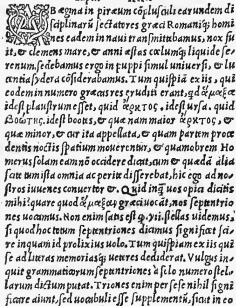 AB Aegina in piræum cōplusculi earundem di
sciplinarū sectatores græci Romaniq; homi
nes eadem in naui transmittebamus, nox fu
it, & clemens mare, & anni æstas cœlumq; liquide se-
renum. sedebamus ergo in puppi simul uniuersi, & lu
centia sydera cōsiderabamus. Tum quispiā ex iis, qui
eodem in numero græcas res eruditi erant, quid ἅμαξα,
idest plaustrum esset, quid ἄρκτος, idest ursa, quid
βοώτης. idest bootes, & quæ nam maior ἄρκτος, &
quæ minor, & cur ita appellata, & quam partem proce
dentis noctis spatium mouerentur, & quamobrem Ho
merus solam eam nō occidere dicat, cum & quædā alia
scite tum ista omnia ac perite disserebat, hic ego ad no-
stros iuuenes conuertor &. Quid inq̄ uos opici dicitis
mihi? quare quod ἅμαξαν græci uocāt, nos septentrio
nes uocamus. Non enim satis est q. uii. stellas uidemus,
si quod hoc totum septentriones dicimus significet sci-
re inquam id prolixius uolo. Tum quispiam ex iis qui
se ad literas memoriasq; ueteres dediderat. Vulgus in-
quit grammaticorum septentriones à solo numero stel-
larum dictum putat. Triones enim per se nihil signi
ficare aiunt, sed uocabuli esse supplementū: sicut in